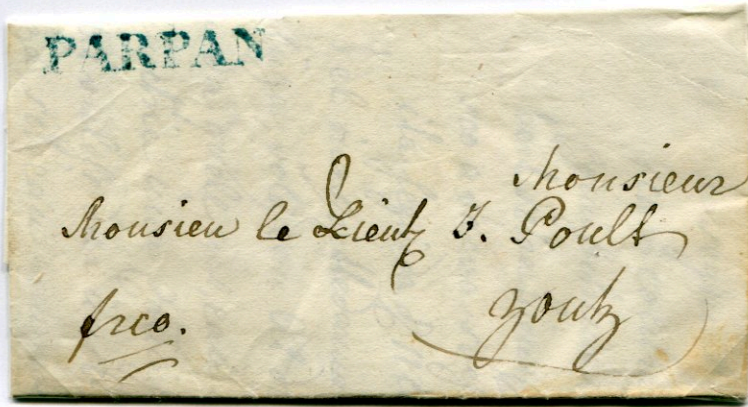 PARPAN
Monsieur
Monsieu le Lieut J. Poult
Zoutz
frco.